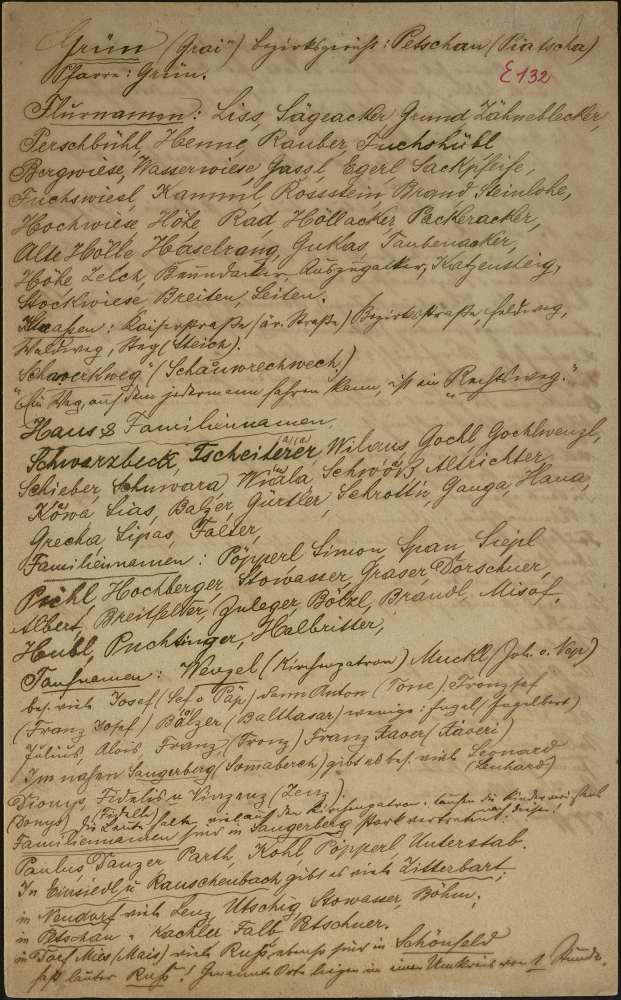 Grün (Grai") Bezirksgericht: Petschau (Piatscha)
Pfarre: Grün.
E 132
Flurnamen: Liss, Sägeacker Grund Zähneblecker,
Perschbühl, Henne, Rauber, Fuchshübl
Bergwiese, Wasserwiese Gassl, Egerl Sackpfeife,
Fuchswiesl, Kamml, Rossstein, Brand, Steinlohe,
Hochwiese Höhe Rad Höllacker Packeracker,
Alte Hölle Haselrang, Gukas, Taubenacker,
Höhe Zelch, Auszugacker, Katzensteig,
Stockwiese, Breiten, Leiten.
Straßen: Kaiserstraße (är. Straße) Bezirksstraße, Feldweg,
Waldweg, Steg (Steich).
Schauerkweg" (Schauwrechwech.)
"Ein Weg, auf dem jedermann fahren kann, ist ein "Rechtsweg."
Haus & Familiennamen.
Schwarzbeck, Tscheiterer, Wilaus, Gochl Gochlwenzl,
Schieber, Schuwara, Wiala, Schwöß, Altrichter,
Köwa Lias, Balzer, Gürtler, Schrottn, Ganga, Hana,
Grecka Lipas, Falter,
Familiennamen: Pöpperl Simon, Span, Siepl
Pichl, Hochberger, Stowasser, Graser, Dörschner,
Albert, Breitfelder, Zuleger, Bölzl, Brandl, Misof,
Heubl, Puchtinger, Halbritter,
Taufnamen: Wenzel (Kirchenpatron) Muckl (Joh. v. Nep)
bes. viele Josef (Sef o Päp) dann Anton (Tone), Franzsef
(Franz Josef) Bälzer (Balthasar) wenige: Engel (Engelbert)
Julius, Alois Franz (Fronz) Franz Xaver (Xaveri)
Im nahen Sangerberg (Somaberch) gibt es bes. viele Leonard
(Lenhard)
Dionys, Fidelis u Vinzenz (Zenz).
(Donys) (Fidelt)
Die Leute halten viel auf den Kirchenpatron, taufen die Kinder
Familiennamen sind in Sangerberg stark vertreten:
Paulus, Danzer Parth, Kohl, Pöpperl Unterstab.
In Einsiedl u Rauschenbach gibt es viele Zitterbart,
in Neudorf viele Lenz, Utschig, Stowasser, Böhm.
in Petschau " Kachler Falb Petschner.
in Dorf Mies (Mais) viele Ruß, ebenso sind in Schönfeld
fast lauter Ruß! Genannte Orte liegen in einem Umkreis von 1 Stunde.